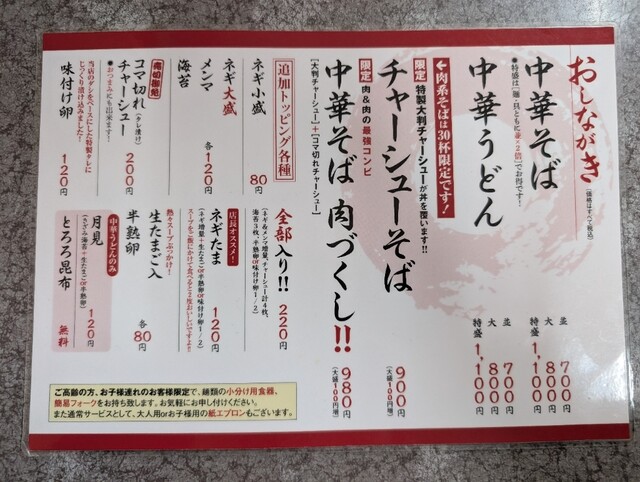 おしながき
(価格はすべて税込)
中華そば
並 700円
大 800円
特盛 1,100円
●特盛は「麺・具ともに並×2倍」でお得です!
中華うどん
並 700円
大 800円
特盛 1,100円
←肉系そばは30杯限定です!
限定 特製大判チャーシューが丼を覆います!!
チャーシューそば
900円
(大盛100円増)
限定 肉&肉の最強コンビ
中華そば 肉づくし!!
980円
(大盛100円増)
【大判チャーシュー】+【コマ切れチャーシュー】
追加トッピング各種
ネギ小盛 80円
ネギ大盛
メンマ
海苔
各120円
売切御免
コマ切れ(タレ漬け)
チャーシュー 200円
●おつまみにも出来ます!
当店のダシをベースにした特製タレに
じっくり漬け込みました!
味付け卵 120円
全部入り!! 220円
(ネギ各、メンマ増量、チャーシュー計4枚、
海苔3枚、半熟卵or味付け卵1/2)
店長オススメ!
ネギたま 120円
(ネギ増量+生たまごor半熟卵or味付け卵1/2)
スープをご飯にかけて食べると2度おいしいですよ!!
熱々スープぶっかけ!
生たまご入
半熟卵
各80円
中華うどんのみ
月見 120円
(きざみ海苔+生たまごor半熟卵)
とろろ昆布 無料
ご高齢の方、お子様連れのお客様限定で、麺類の小分け用食器、
簡易フォークをお持ち致します。お気軽にお申し付けください。
また通常サービスとして、大人用orお子様用の紙エプロンもございます。